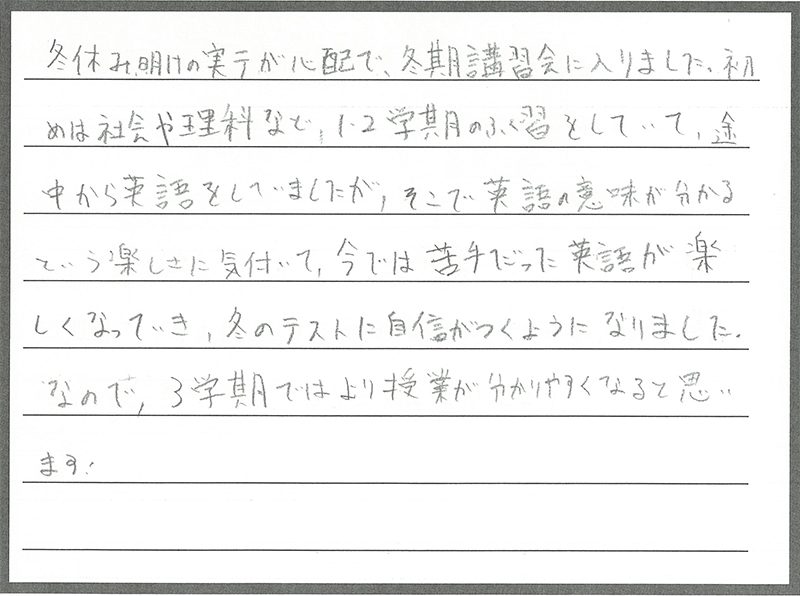 冬休み明けの実テが心配で、冬期講習会に入りました。初
めは社会や理科など、1・2学期のふく習をしていて、途
中から英語をしていましたが、そこで英語の意味が分かる
という楽しさに気付いて、今では苦手だった英語が楽
しくなっていき、冬のテストに自信がつくようになりました。
なので、3学期ではより授業が分かりやすくなると思い
ます!